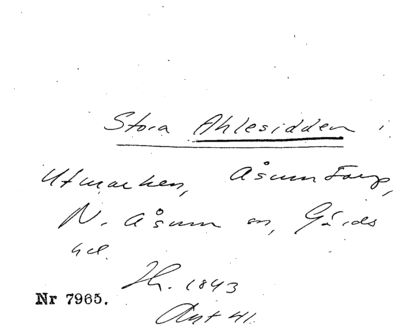 Stora Ahlesidden i
Utmarken, Åsumtorp,
N. Åsum sn, Gärds
hd.
Th. 1843
Akt 41.
Nr 7965.